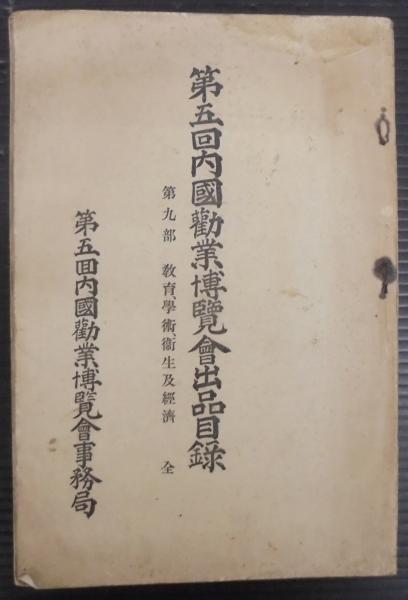 第五回内國勸業博覽會出品目錄
第九部 教育、學術、衞生及經濟 全
第五回内國勸業博覽會事務局